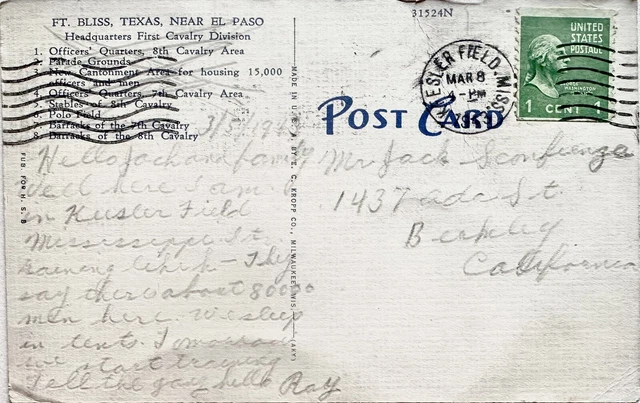 FT. BLISS, TEXAS, NEAR EL PASO
Headquarters First Cavalry Division
1. Officers' Quarters, 8th Cavalry Area
2. Parade Grounds
3. New Cantonment Area for housing 15,000
officers and men
4. Officers' Quarters, 7th Cavalry Area
5. Stables of 8th Cavalry
6. Polo Field
7. Barracks of the 7th Cavalry
8. Barracks of the 8th Cavalry
Hello Jack and family
Well here I am
in Keesler Field
Mississippi. It
raining like h— They
say there is about 80000
men here. We sleep
in tents. Tomorrow
we start training
Tell the gay hello Ray
PUB FOR H. S. B
MADE IN U. S. A. BY E. C. KROPP CO., MILWAUKEE, WIS.
31524N
POST CARD
KEESLER FIELD, MISSISSIPPI
MAR 8
4-PM
UNITED
STATES
POSTAGE
GEORGE
WASHINGTON
1 CENT 1
Mr Jack
1437 Ada St.
Berkley
California